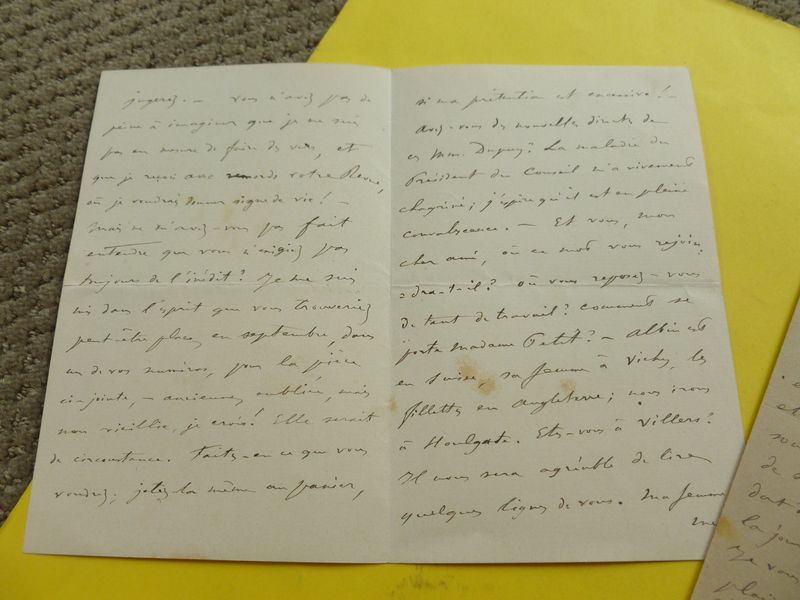 jugerez. — Vous n'avez pas de
peine à imaginer que je ne suis
pas en mesure de faire des vers, et
que je reçois avec remords votre Revue,
où je voudrais donner signe de vie! —
Mais ne m'avez-vous pas fait
entendre que vous n'exigiez pas
toujours de l'inédit? Je me suis
mis dans l'esprit que vous trouveriez
peut-être place, en septembre, dans
un de vos numéros, pour la pièce
ci-jointe, — ancienne, oubliée, mais
non vieillie, je crois! Elle serait
de circonstance. Faites-en ce que vous
voudrez; jetez-la même au panier,
si ma prétention est excessive! —
Avez-vous des nouvelles directes de
ces MM. Dupuy? La maladie du
Président du Conseil m'a vivement
chagriné; j'espère qu'il est en pleine
convalescence. — Et vous, mon
cher ami, où ce mot vous rejoin-
dra-t-il? Où vous reposez-vous
de tant de travail? Comment se
porte Madame Petit? — Albin est
en Suisse, sa femme à Vichy, les
fillettes en Angleterre; nous irons
à Houlgate. Etes-vous à Villers?
Il nous sera agréable de lire
quelques lignes de vous. Ma femme
me
et
de
la jou
Je vous